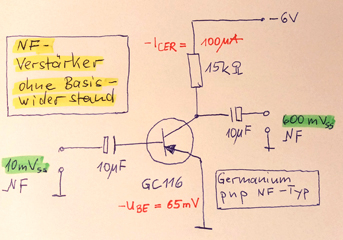 NF-
Verstärker
ohne Basis-
widerstand
-6V
-I_CER = 100µA
15kΩ
10µF
600mVss
NF
10mVss
NF
10µF
GC116
-U_BE = 65mV
Germanium
pnp NF-Typ